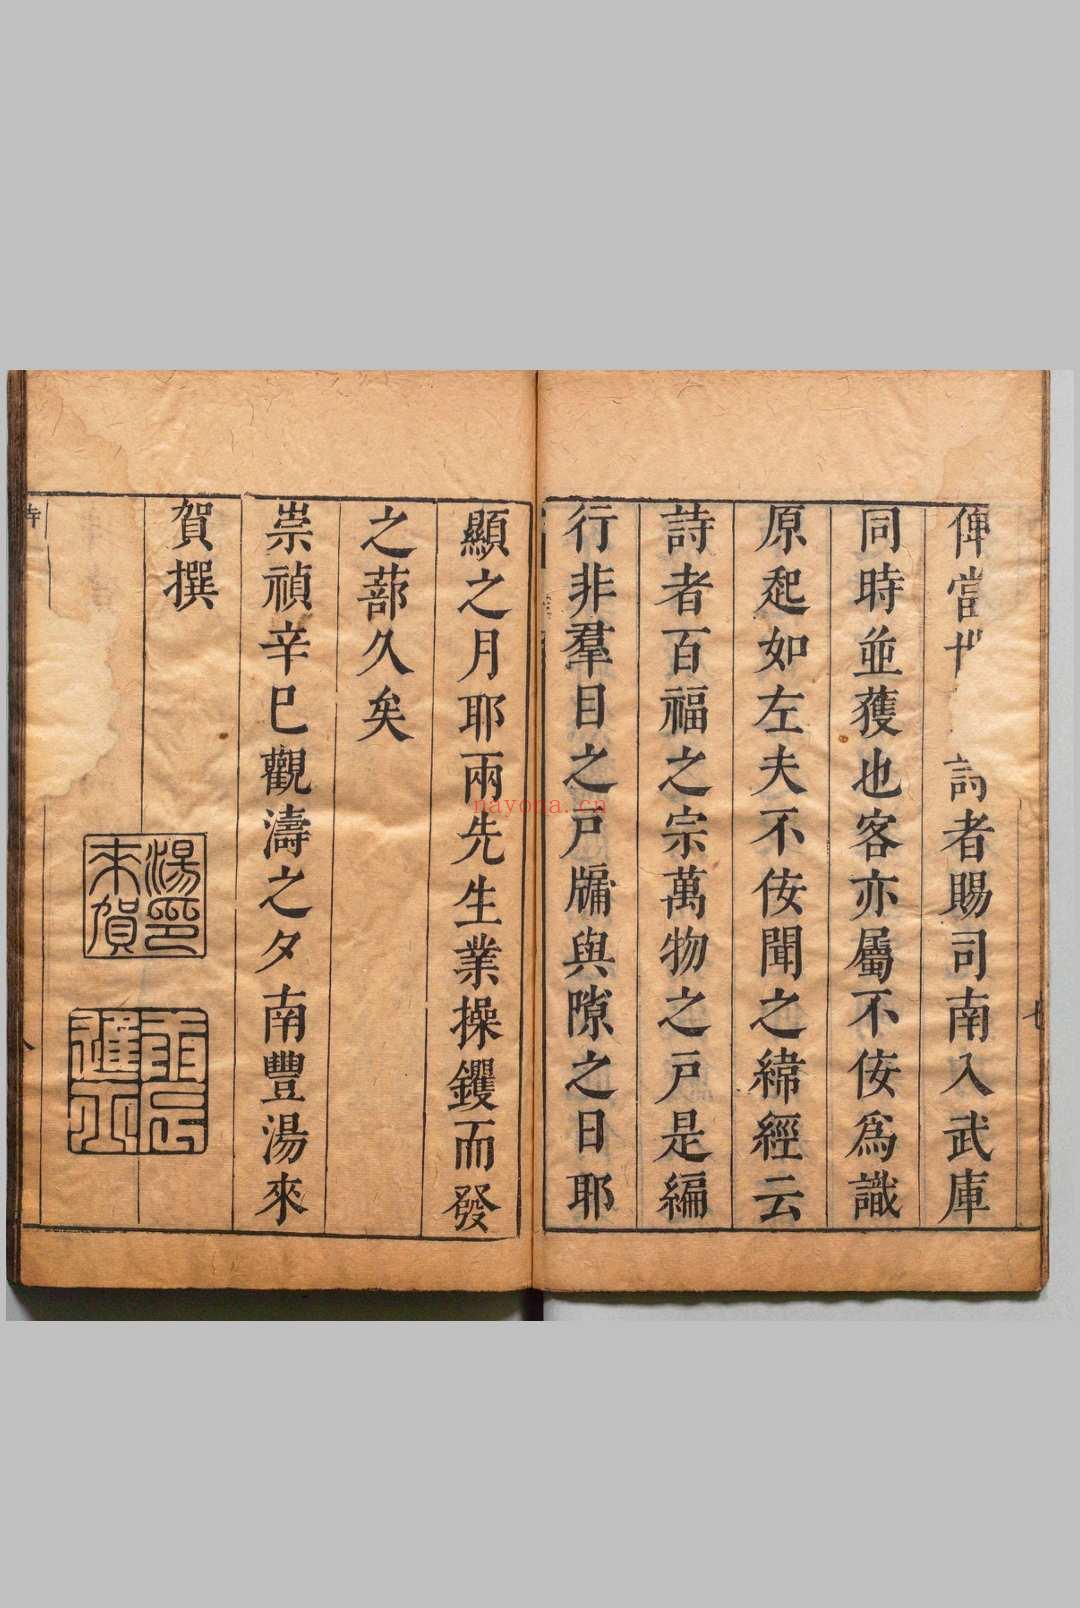 俾當世詩者賜司南入武庫
同時並獲也客亦屬不佞爲識
原起如左夫不佞聞之緯經云
詩者百福之宗萬物之戸是編
行非羣目之戸牖與隙之日耶
七
顯之月耶兩先生業操钁而發
之蔀久矣
崇禎辛巳觀濤之夕南豐湯來
賀撰
湯印來賀
nayona.cn